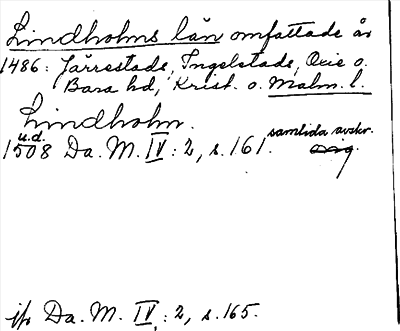 Lindholms län omfattade år
1486: Järrestads, Ingelstads, Oxie o.
Bara hd, Krist. o. Malm. l.
Lindholm.
u.d. samtida avskr.
1508 Da. M. IV: 2, s. 161. orig.
jfr Da. M. IV: 2, s. 165.